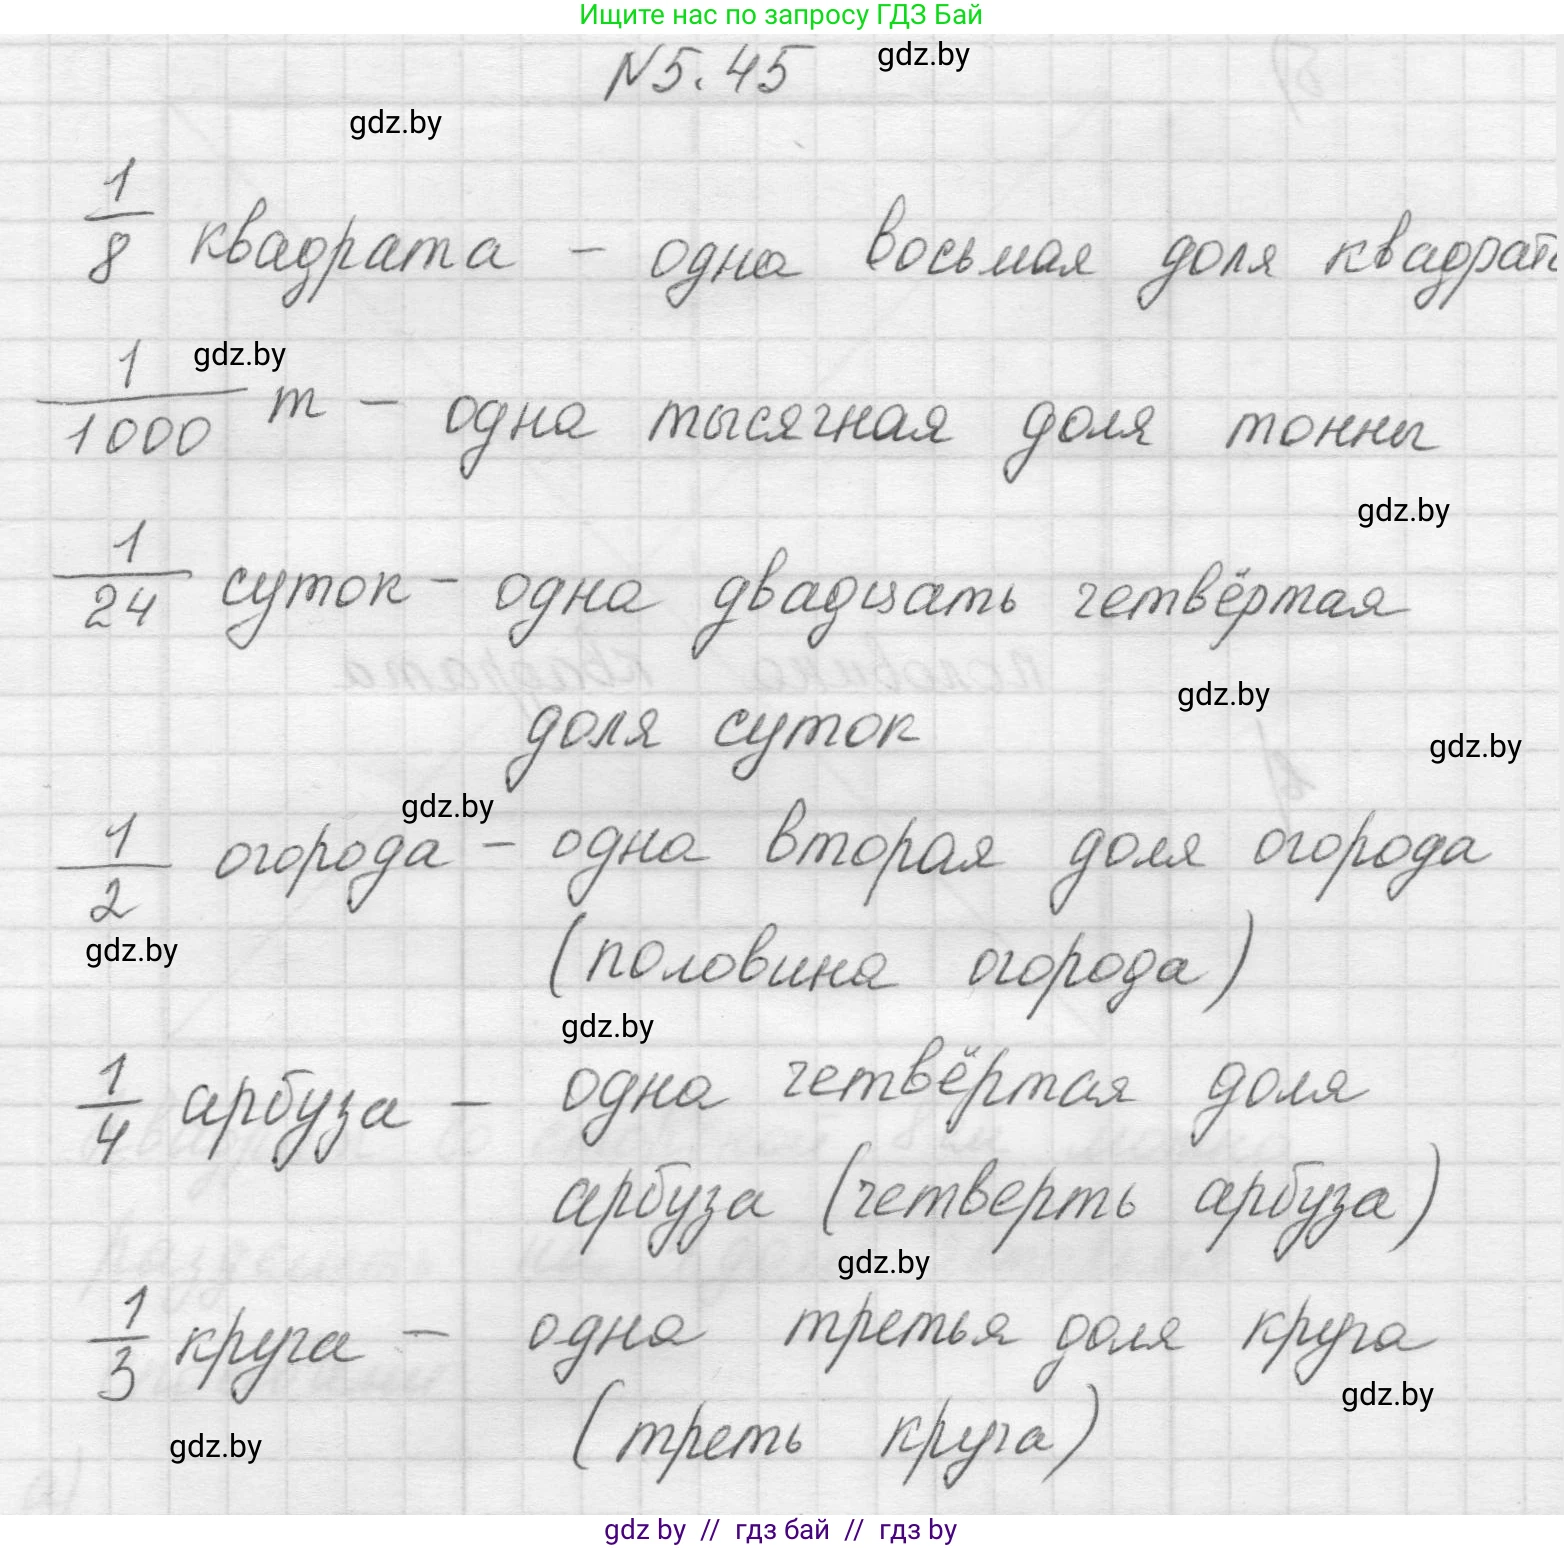 Ищите нас по запросу ГДЗ Бай
N5.45
gdz.by
gdz.by
1/8 квадрата – одна восьмая доля квадрата
gdz.by
1/1000 т – одна тысячная доля тонны
gdz.by
1/24 суток – одна двадцать четвёртая
gdz.by
доля суток
gdz.by
gdz.by
1/2 огорода – одна вторая доля огорода
gdz.by
(половина огорода)
gdz.by
1/4 арбуза – одна четвёртая доля
арбуза (четверть арбуза)
gdz.by
1/3 круга – одна третья доля круга
gdz.by
(треть круга)
gdz.by
gdz by // гдз бай // гдз by